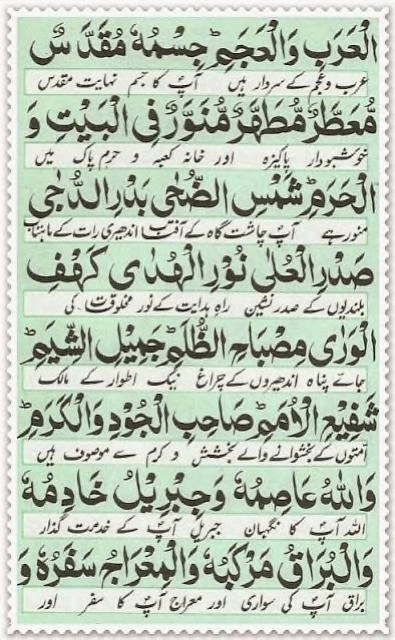 الْعَرَبِ وَالْعَجَمِ ط جِسْمُهٗ مُقَدَّسٌ
عرب و عجم کے سردار ہیں آپؐ کا جسم نہایت مقدس
مُّعَطَّرٌ مُّطَهَّرٌ مُّنَوَّرٌ فِی الْبَیْتِ وَ
خوشبودار پاکیزہ اور خانہ کعبہ و حرم پاک میں
الْحَرَمِ ط شَمْسِ الضُّحٰی بَدْرِ الدُّجٰی
منور ہے آپؐ چاشت گاہ کے آفتاب اندھیری رات کے ماہتاب
صَدْرِ الْعُلٰی نُوْرِ الْهُدٰی كَهْفِ
بلندیوں کے صدر نشین راہِ ہدایت کے نور مخلوقات کی
الْوَرٰی مِصْبَاحِ الظُّلَمِ ط جَمِیْلِ الشِّیَمِ ط
جائے پناہ اندھیروں کے چراغ نیک اطوار کے مالک
شَفِیْعِ الْاُمَمِ ط صَاحِبِ الْجُوْدِ وَالْكَرَمِ ط
اُمتوں کے بخشوانے والے بخشش و کرم سے موصوف ہیں
وَاللّٰهُ عَاصِمُهٗ وَجِبْرِیْلُ خَادِمُهٗ
اللہ آپؐ کا نگہبان جبریل آپؐ کے خدمت گذار
وَالْبُرَاقُ مَرْكَبُهٗ وَالْمِعْرَاجُ سَفَرُهٗ وَ
براق آپؐ کی سواری اور معراج آپؐ کا سفر اور